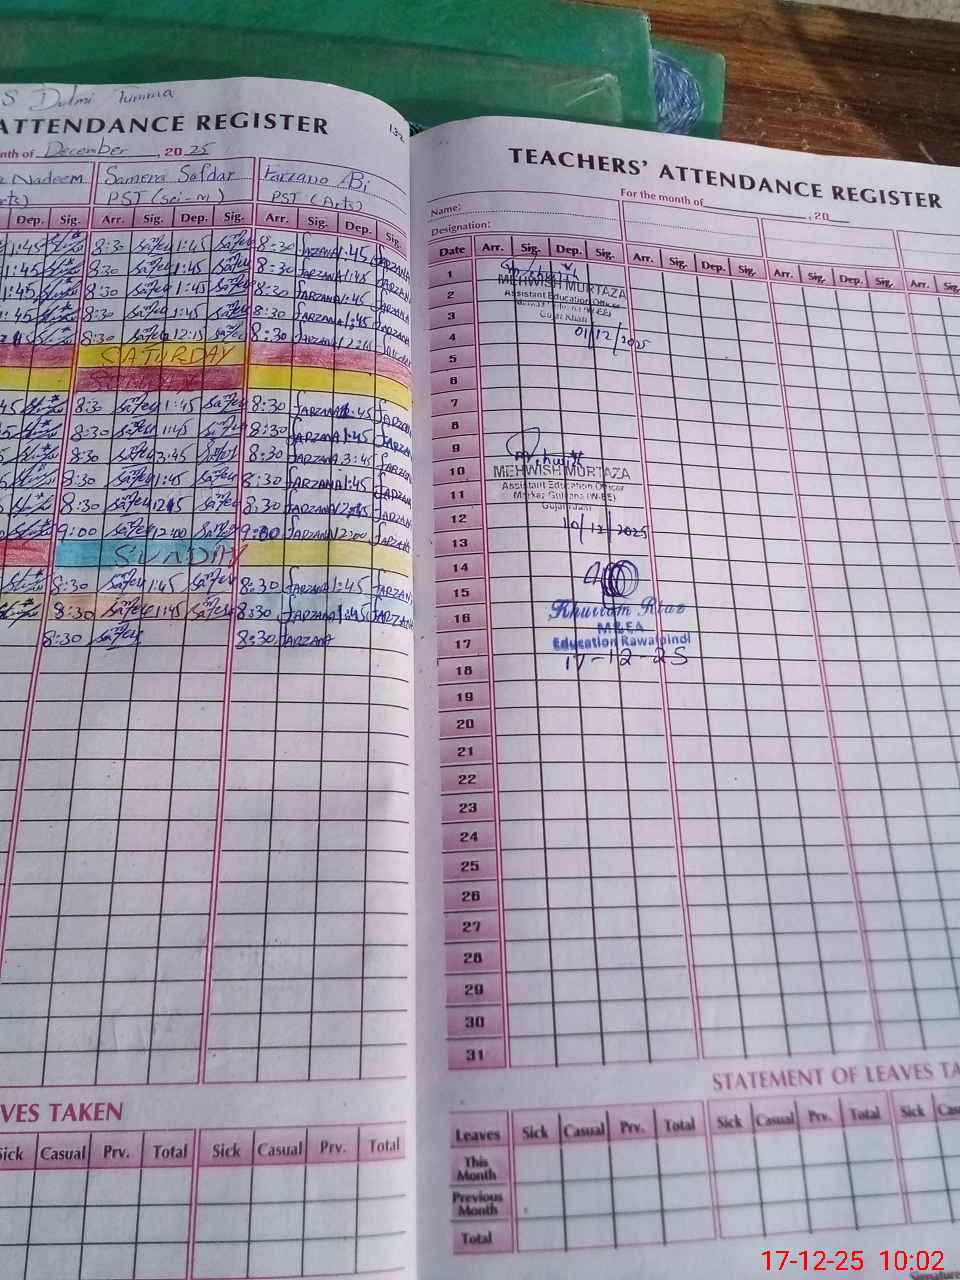 S Dulmi Tumma
ATTENDANCE REGISTER
132
nth of December, 2025
Nadeem Samera Safdar Farzano Bi
PST (sci-m) PST (Arts)
Dep. Sig. Arr. Sig. Dep. Sig. Arr. Sig. Dep. Sig.
1:45 8:30 Safeer 1:45 Safeer 8:30 FARZANA 1:45 FARZANA
1:45 8:30 Safeer 1:45 Safeer 8:30 FARZANA 1:45 FARZANA
1:45 8:30 Safeer 1:45 Safeer 8:30 FARZANA 1:45 FARZANA
1:45 8:30 Safeer 1:45 Safeer 8:30 FARZANA 1:45 FARZANA
8:30 Safeer 12:15 Safeer 8:30 FARZANA
SATURDAY
SUNDAY
45 8:30 Safeer 1:45 Safeer 8:30 FARZANA 1:45 FARZANA
8:30 Safeer 1:45 Safeer 8:30 FARZANA 1:45 FARZANA
8:30 Safeer 3:45 Safeer 8:30 FARZANA 3:45 FARZANA
8:30 Safeer 1:45 Safeer 8:30 FARZANA 1:45 FARZANA
8:30 Safeer 1215 Safeer 8:30 FARZANA FARZANA
9:00 Safeer 12:00 Safeer 9:00 FARZANA 12:00 FARZANA
SUNDAY
8:30 Safeer 1:45 Safeer 8:30 FARZANA 1:45 FARZANA
8:30 Safeer 1:45 Safeer 8:30 FARZANA 1:45 FARZANA
8:30 Safeer 8:30 FARZANA
VES TAKEN
Sick Casual Prv. Total Sick Casual Prv. Total
TEACHERS' ATTENDANCE REGISTER
For the month of , 20
Name:
Designation:
Date Arr. Sig. Dep. Sig. Arr. Sig. Dep. Sig. Arr. Sig. Dep. Sig. Arr. Sig.
1
MEHWISH MURTAZA
2
Assistant Education Officer
3
Gujar Khan
4 01/12/2025
5
6
7
8
9
10 MEHWISH MURTAZA
Assistant Education Officer
11 Markaz Guliana (W-EE)
Gujar Khan
12 10/12/2025
13
14
15
16 Khurram Riaz
M&EA
17 Education Rawalpindi
17-12-25
18
19
20
21
22
23
24
25
26
27
28
29
30
31
STATEMENT OF LEAVES TA
Leaves Sick Casual Prv. Total Sick Casual Prv. Total Sick Cas
This Month
Previous Month
Total
17-12-25 10:02